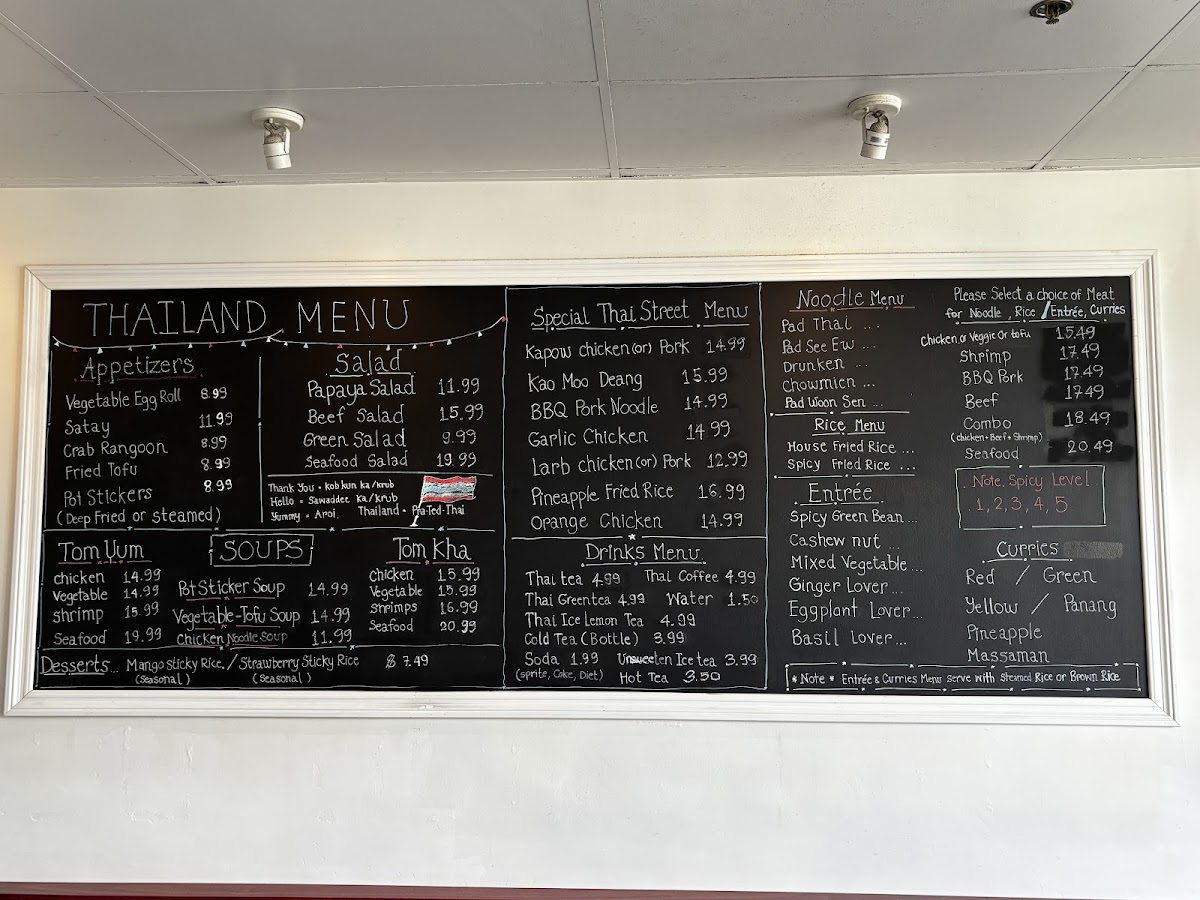 THAILAND MENU
Appetizers
Vegetable Egg Roll 8.99
Satay 11.99
Crab Rangoon 8.99
Fried Tofu 8.99
Pot Stickers 8.99
(Deep Fried or steamed)
Salad
Papaya Salad 11.99
Beef Salad 15.99
Green Salad 9.99
Seafood Salad 19.99
Thank You • kob kun ka/krub
Hello • Sawaddee ka/krub
Yummy • Aroi
Thailand • Pra-Ted-Thai
Tom Yum
chicken 14.99
Vegetable 14.99
shrimp 15.99
Seafood 19.99
SOUPS
Pot Sticker Soup 14.99
Vegetable-Tofu Soup 14.99
Chicken Noodle Soup 11.99
Tom Kha
Chicken 15.99
Vegetable 15.99
Shrimps 16.99
Seafood 20.99
Desserts... Mango Sticky Rice. / Strawberry Sticky Rice $ 7.49
(Seasonal) (Seasonal)
Special Thai Street Menu
Kapow chicken (or) Pork 14.99
Kao Moo Deang 15.99
BBQ Pork Noodle 14.99
Garlic Chicken 14.99
Larb chicken (or) Pork 12.99
Pineapple Fried Rice 16.99
Orange Chicken 14.99
Drinks Menu
Thai tea 4.99 Thai Coffee 4.99
Thai Green tea 4.99 Water 1.50
Thai Ice Lemon Tea 4.99
Cold Tea (Bottle) 3.99
Soda 1.99 Unsweeten Ice tea 3.99
(sprite, Coke, Diet) Hot Tea 3.50
Noodle Menu
Pad Thai ...
Pad See Ew ...
Drunken ...
Chowmien ...
Pad Woon Sen ...
Rice Menu
House Fried Rice ...
Spicy Fried Rice ...
Entrée
Spicy Green Bean...
Cashew nut ...
Mixed Vegetable ...
Ginger Lover...
Eggplant Lover...
Basil Lover...
Please Select a choice of Meat
for Noodle, Rice / Entrée, Curries
Chicken or Veggie or tofu 15.49
Shrimp 17.49
BBQ Pork 17.49
Beef 17.49
Combo 18.49
(chicken • Beef • Shrimp)
Seafood 20.49
Note. Spicy Level
1, 2, 3, 4, 5
Curries
Red / Green
Yellow / Panang
Pineapple
Massaman
* Note * Entrée & Curries Menu Serve with Steamed Rice or Brown Rice